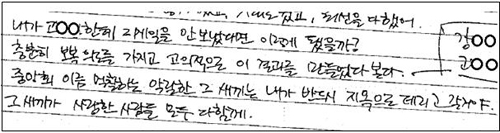 최선을 다했어.
내가 고○○ 한테 그메일을 안 보냈다면 이렇게 됐을까?
충분히 보복 의도를 가지고 고의적으로 이 결과를 만들었다 본다.
강○○
고○○
중앙회 이름 먹칠하는 악랄한 그 새끼는 내가 반드시 지옥으로 데리고 갈거야.
그새끼가 사랑한 사람들 모두 다함께.